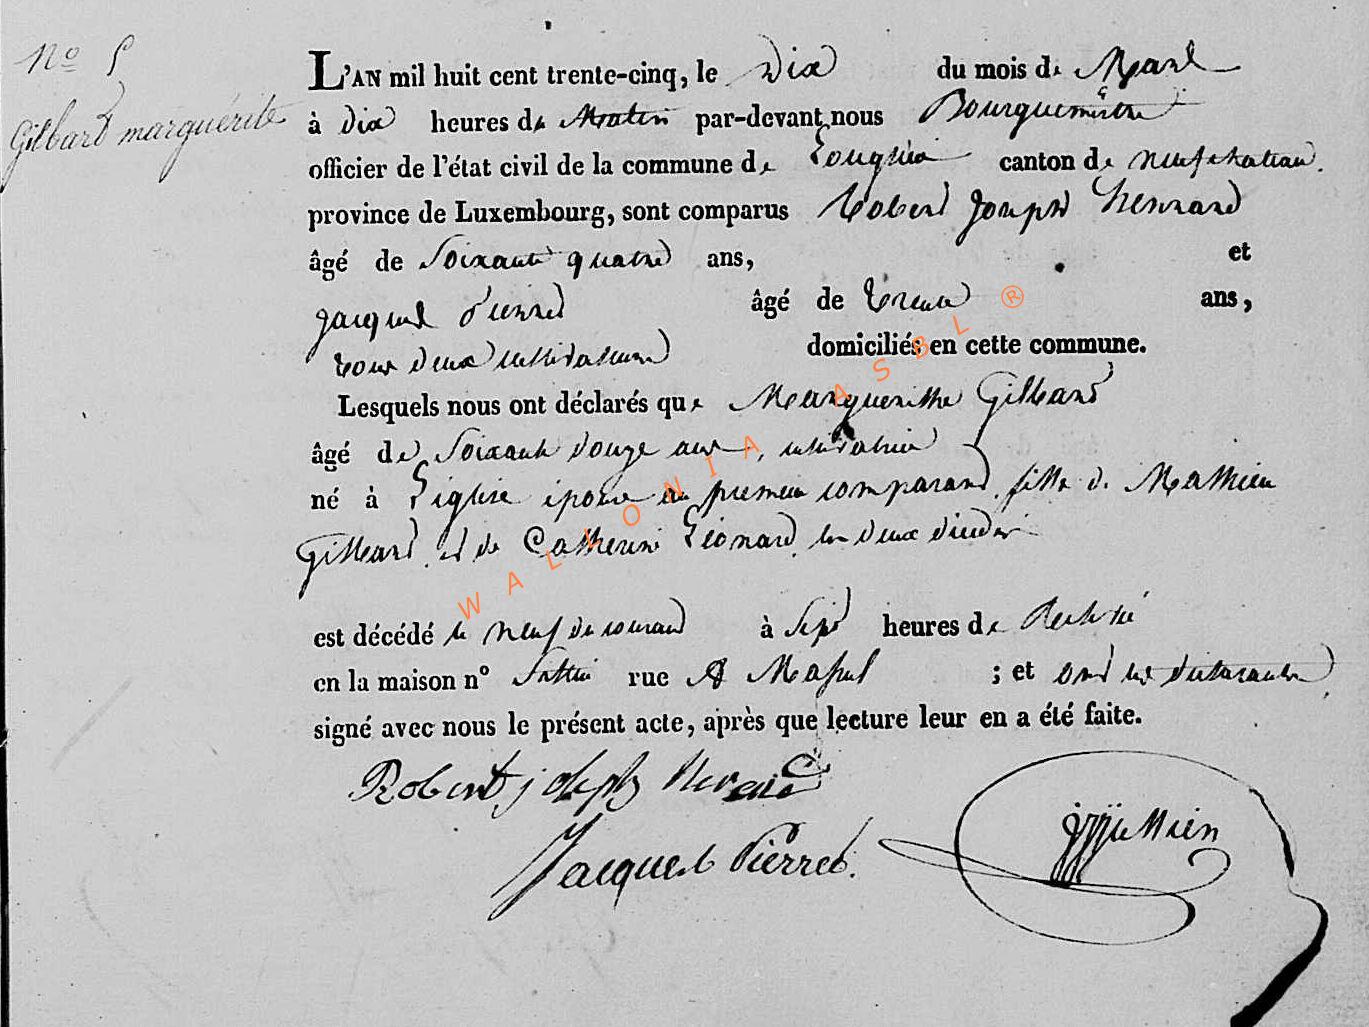 N° 5
Gilbard marguérite
L'AN mil huit cent trente-cinq, le Dix du mois de Mars
à dix heures du Matin par-devant nous Bourguemestre
officier de l'état civil de la commune de Longlier canton de neufchateau.
province de Luxembourg, sont comparus Robert Joseph Henrard
âgé de Soixante quatre ans, et
Jacques Pierret âgé de trente ans,
tous deux cultivateurs domiciliés en cette commune.
Lesquels nous ont déclarés que Marguerithe Gillard
âgé de Soixante douze ans, cultivatrice
né à L'église épouse du premier comparant, fille de Mathieu
Gillard et de Catherine Léonard, les deux décédés
est décédé le neuf du courant à Sept heures de
en la maison n° rue A ; et ont les déclarants
signé avec nous le présent acte, après que lecture leur en a été faite.
Robert joseph Henrard
Jacques Pierret.
WALLONIA ASBL ®